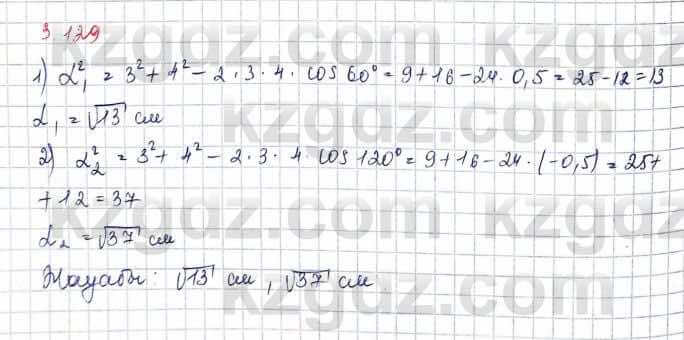 3.129
1) d₁² = 3² + 4² - 2·3·4·cos 60° = 9 + 16 - 24·0,5 = 25 - 12 = 13
d₁ = √13 см
2) d₂² = 3² + 4² - 2·3·4·cos 120° = 9 + 16 - 24·(-0,5) = 25+
+ 12 = 37
d₂ = √37 см
Жауабы: √13 см, √37 см
kzgdz.com
kzgdz.com
kzgdz.com
kzgdz.com
kzgdz.com
kzgdz.com